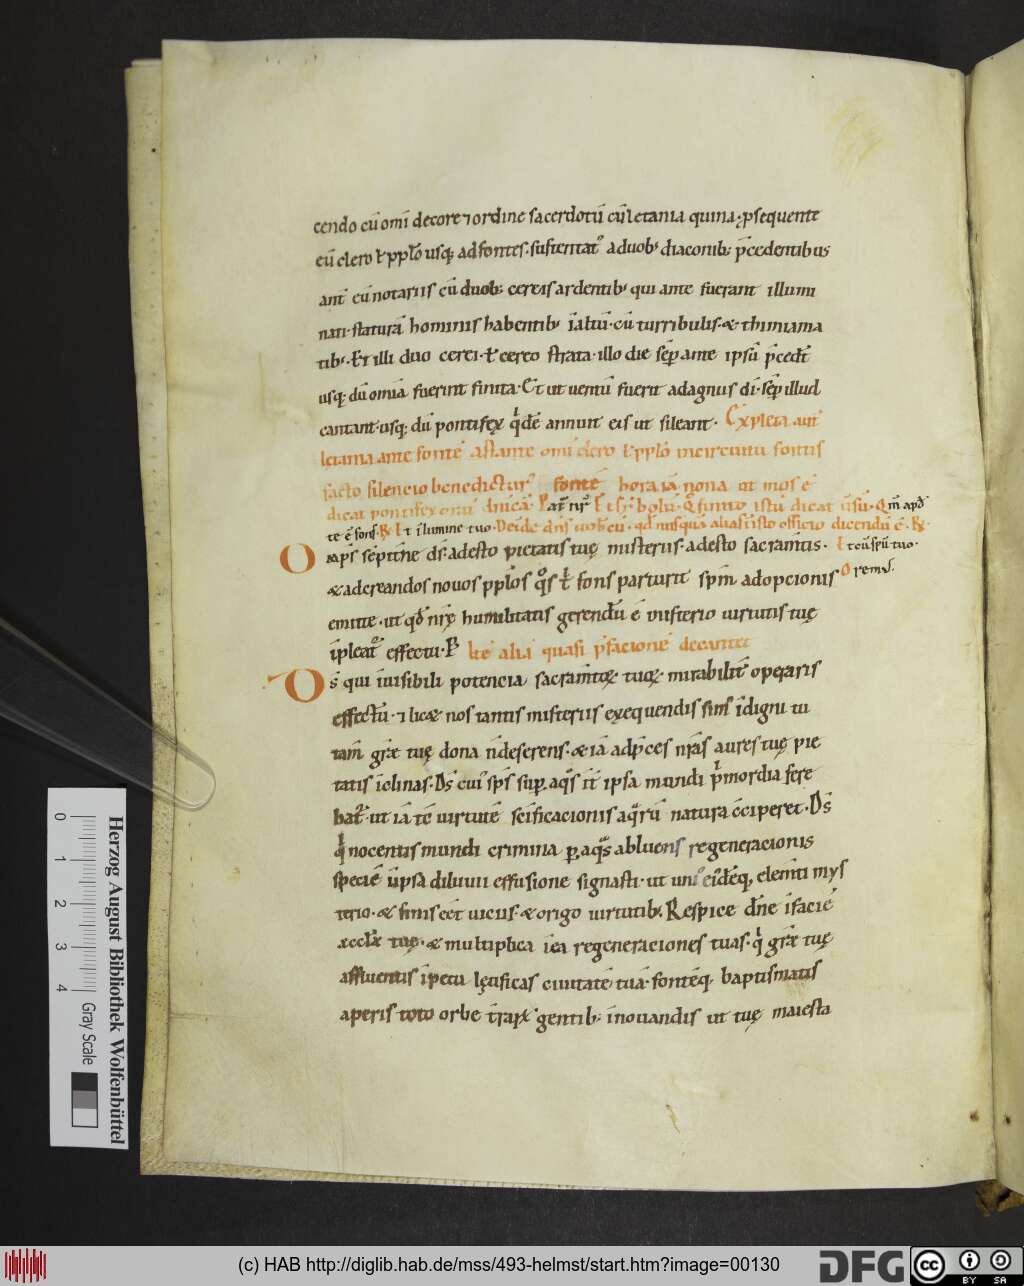 cendo cū omī decore ⁊ ordine sacerdotū cū letania quina· ꝓsequente
cū clero ł ppło usq; ad fontes· sustentatᷣ a duob; diaconib; p̄cedentibus
ant̄ eū notariis cū duob; cereis ardentib; qui ante fuerant illumi
nati· staturā hominis habentib; ī altū· cū turribulis· & thimiama
tib;· Et illi duo cerei· ł cereo strata· illo die sēp ante ipsū p̄cedt̄
usq; dū omīa fuerint finita· Et ut uentū fuerit ad agnus dī· sēp illud
cantant· usq; dū pontifex q̇dē annuit eis ut sileant· Expleta aut̄
letania ante fontē astante omī clero ł ppło incircuitu fontis
facto silencio benedicturꝰ fontē hora iā nona ut mos ē
dicat pontifex cū dn̄icā· Pat̄ nr̄ Et sȳbolū· Q̊ finito istū dicat ūsū· Qm̄ apđ
te ē fons· ℞ Et ī lumine tuo· Deīde dn̄s uob̄cū· qđ nusquā alias ī isto officio dicendū ē· ℞·
Omps̄ sēpit̄ne ds̄· adesto pietatis tuę misteriis· adesto sacram̄tis· Et cū sp̄u tuo·
& ad creandos nouos ppłos q̊s t̄ fons parturit sp̄m adopcionis Orem;·
emitte· ut qđ nr̄ę humilitatis gerendū ē misterio uirtutis tuę
īpleat̄ effectu· P
Itē alia quasi p̄facionē decantet
Ds̄ qui īuisibili potencia sacram̄toꝝ tuoꝝ· mirabilit̄ operaris
effectū· ⁊ lic& nos tantis misteriis exequendis sim̄ īdigni tu
tam̄ gr̄æ tuę dona n̄ deserens· & iā ad p̄ces nr̄as aures tuę pie
tatis īclinas· Ds̄ cuiꝰ sp̄s sup aq̄s īt̄ ipsa mundi p̄mordia fere
bat̄· ut iā tē uirtutē sc̄ificacionis aq̄rū natura c̄ciperet· Ds̄
q̇ nocentis mundi crimina ꝑ aq̄s abluens regeneracionis
speciē ī ipsa diluuii effusione signasti· ut uniꝰ eīdēq; elem̄ti mys
terio· & finis eēt uiciis· & origo uirtutib;· Respice dn̄e ī faciē
æccl̄æ tuę· & multiplica ī ea regeneraciones tuas· q̇ gr̄æ tuę
affluentis īpetu lętificas ciuitatē tuā· fontēq; baptismatis
aperis toto orbe t̄raꝝ gentib; īnouandis ut tuę maiesta
Herzog August Bibliothek Wolfenbüttel
0 1 2 3 4
Gray Scale
(c) HAB http://diglib.hab.de/mss/493-helmst/start.htm?image=00130
DFG
cc BY SA